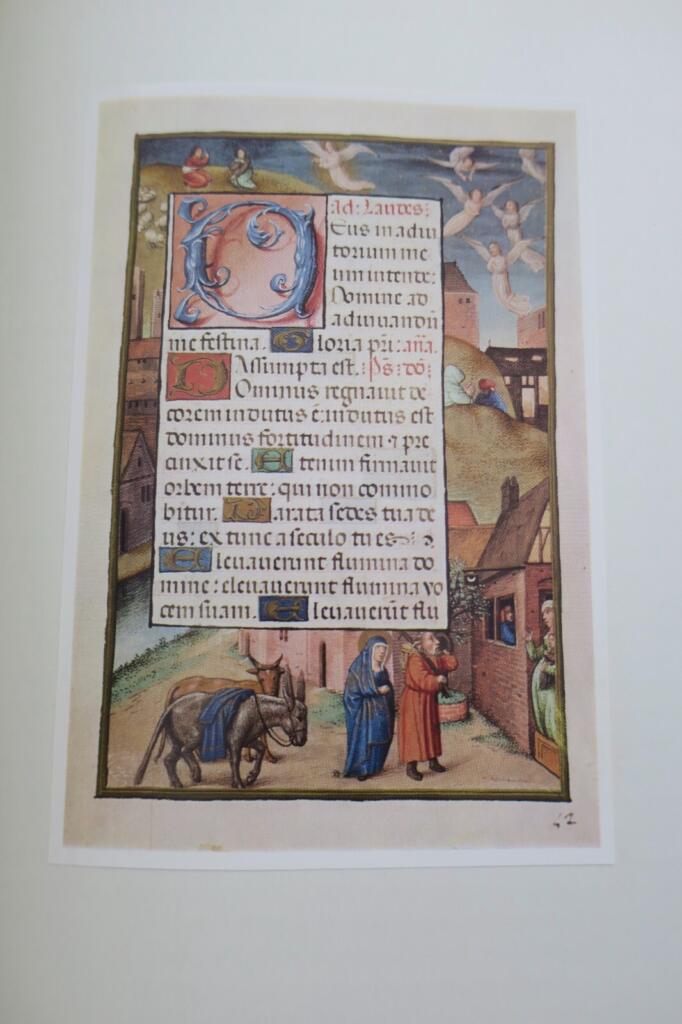 Ad: Laudes:
Eus in adiu
torium me
um intende:
Domine ad
adiuuandū
me festina. Gloria pri: aña.
Assumpta est. Ps: dō:
Dominus regnauit de
corem indutus ē: indutus est
dominus fortitudinem ⁊ pre
cinxit se. Etenim firmauit
orbem terre: qui non commo
bitur. Parata sedes tua de
us: ex tunc a seculo tu es
Eleuauerunt flumina do
mine: eleuauerunt flumina vo
cem suam. Eleuauerūt flu